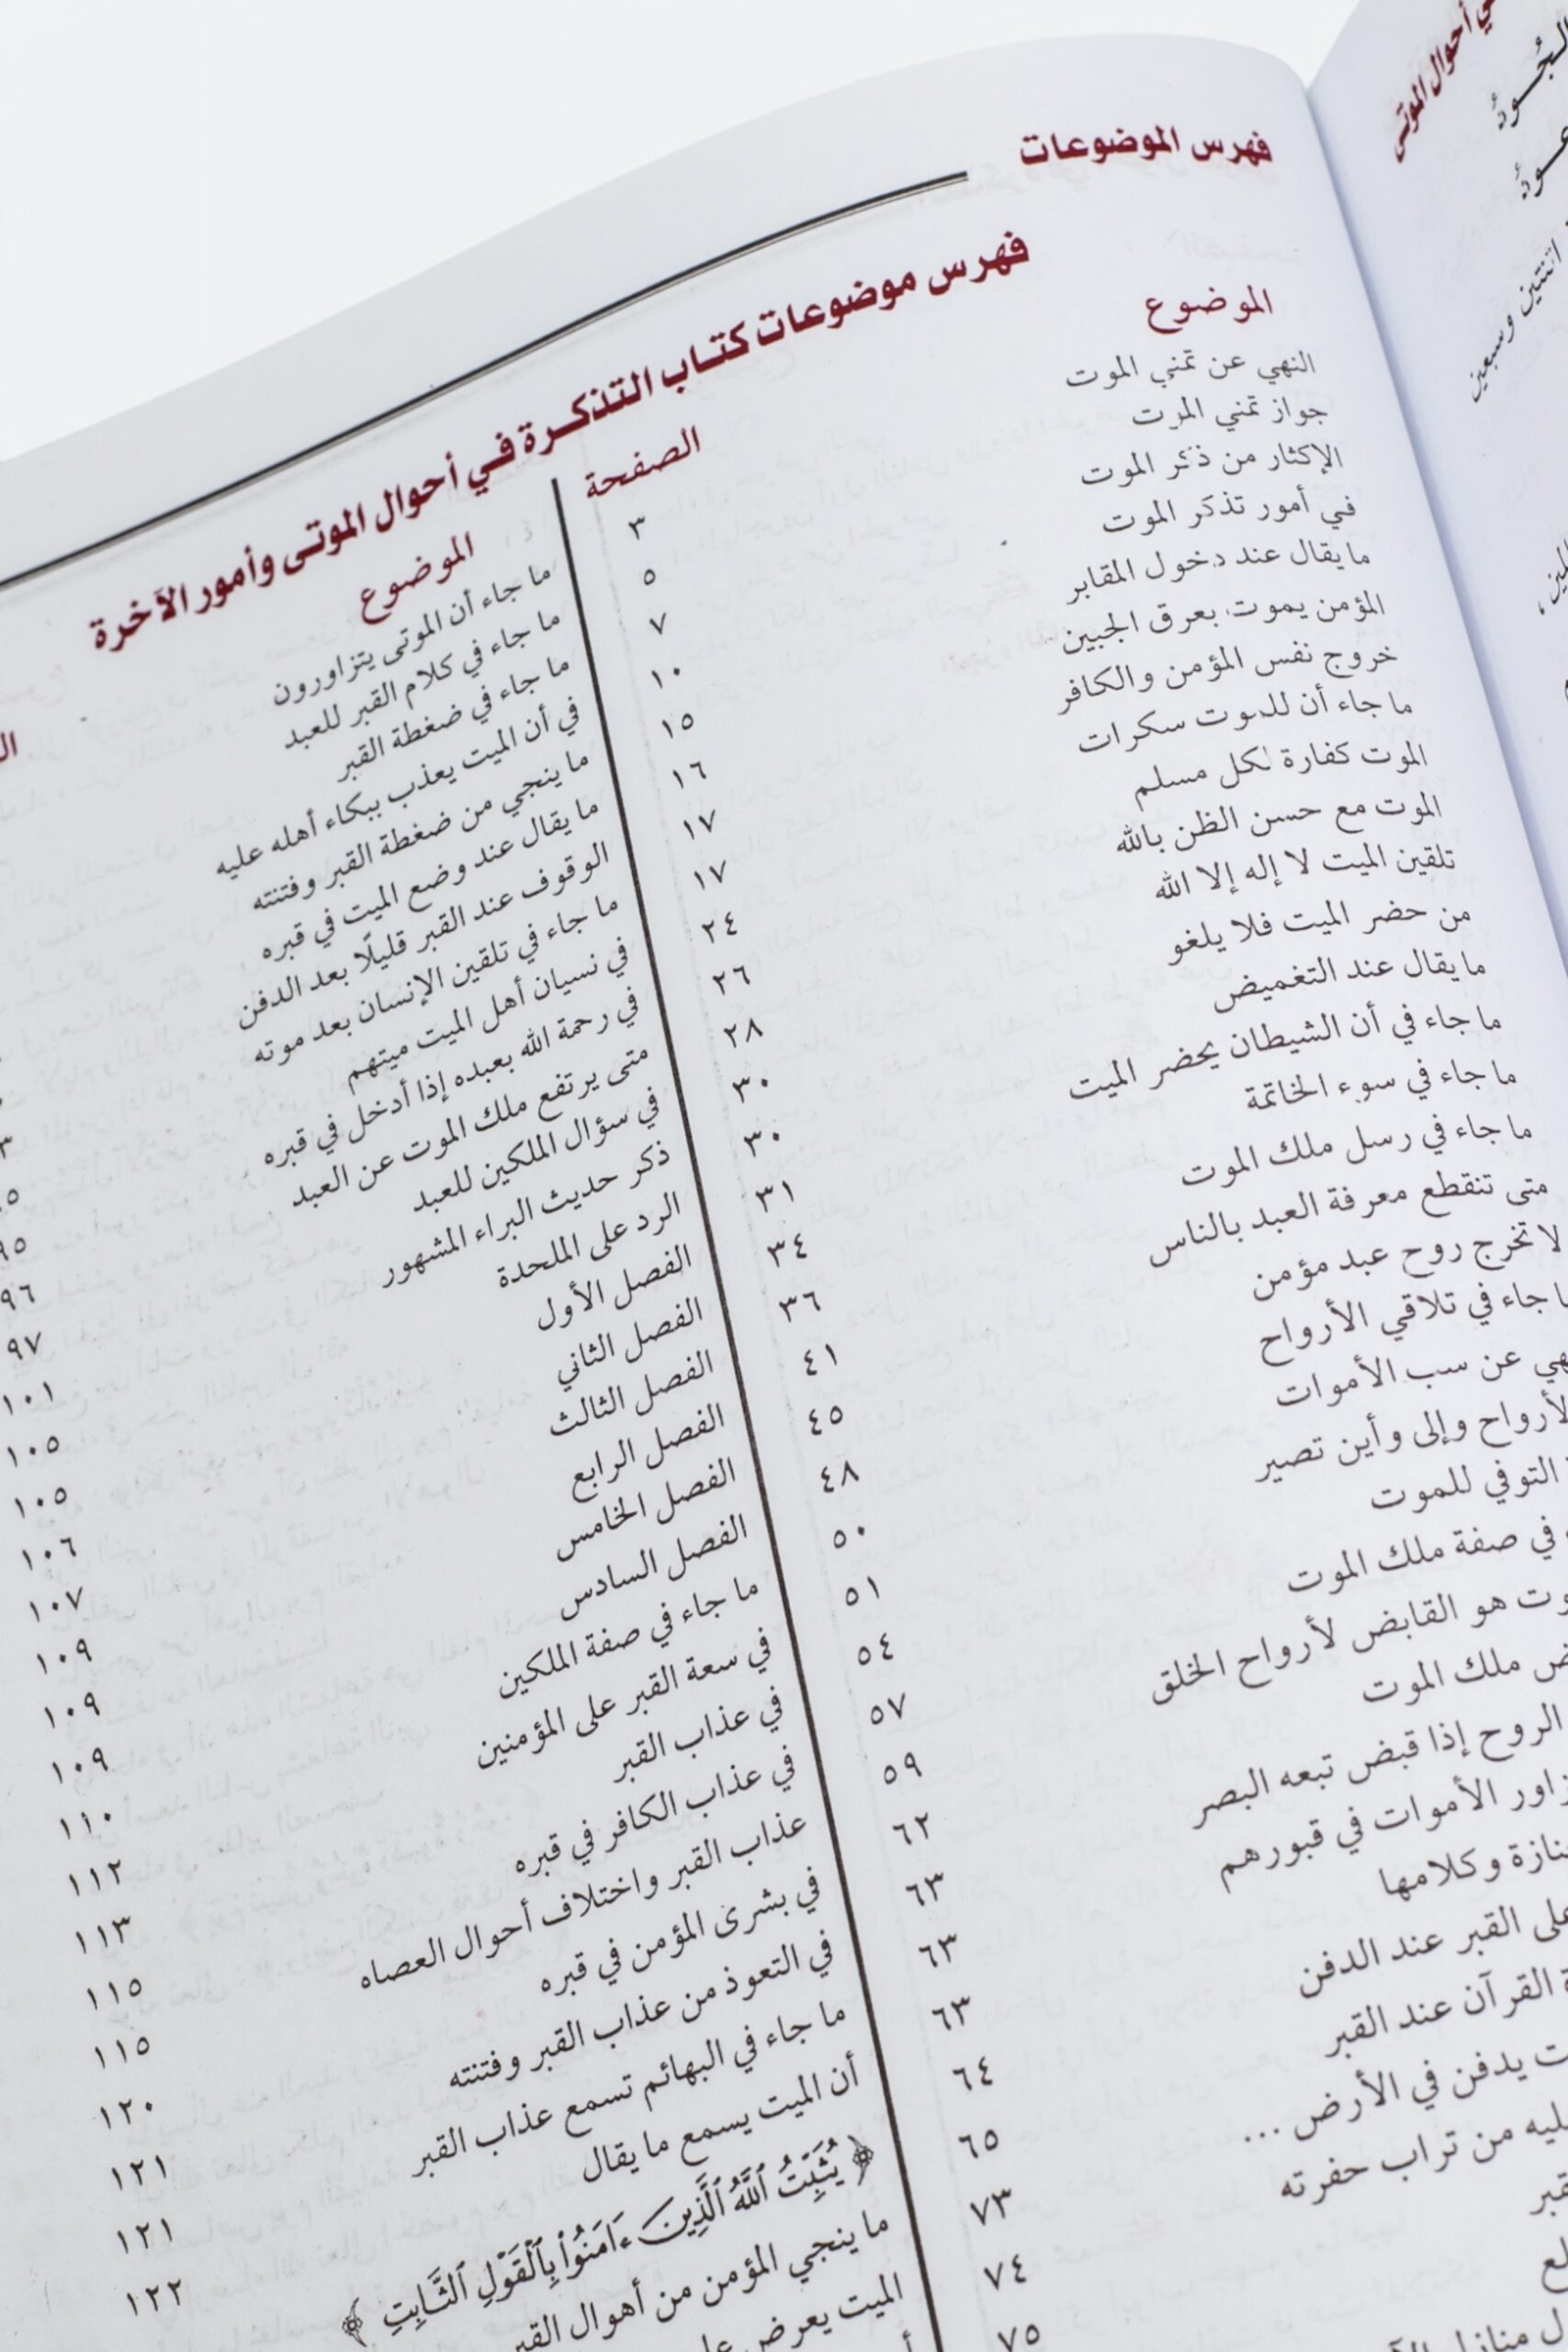 فهرس الموضوعات
فهرس موضوعات كتاب التذكرة في أحوال الموتى وأمور الآخرة
الموضوع
الصفحة
النهي عن تمني الموت
٣
جواز تمني الموت
٥
الإكثار من ذكر الموت
٧
في أمور تذكر الموت
١٠
ما يقال عند دخول المقابر
١٥
المؤمن يموت بعرق الجبين
١٦
خروج نفس المؤمن والكافر
١٧
ما جاء أن للموت سكرات
١٧
الموت كفارة لكل مسلم
٢٤
الموت مع حسن الظن بالله
٢٦
تلقين الميت لا إله إلا الله
٢٨
من حضر الميت فلا يلغو
٣٠
ما يقال عند التغميض
٣٠
ما جاء في أن الشيطان يحضر الميت
٣١
ما جاء في سوء الخاتمة
٣٤
ما جاء في رسل ملك الموت
٣٦
متى تنقطع معرفة العبد بالناس
٤١
لا تخرج روح عبد مؤمن
٤٥
جاء في تلاقي الأرواح
٤٨
عن سب الأموات
٥٠
وإلى وأين تصير
٥١
التوفي للموت
٥٤
في صفة ملك الموت
٥٧
هو القابض لأرواح الخلق
٥٩
ملك الموت
٦٢
الروح إذا قبض تبعه البصر
٦٣
الأموات في قبورهم
٦٣
وكلامها
٦٣
القبر عند الدفن
٦٤
القرآن عند القبر
٦٥
يدفن في الأرض ...
٧٣
من تراب حفرته
٧٤
٧٥
الموضوع
ما جاء أن الموتى يتزاورون
ما جاء في كلام القبر للعبد
ما جاء في ضغطة القبر
في أن الميت يعذب ببكاء أهله عليه
ما ينجي من ضغطة القبر وفتنته
ما يقال عند وضع الميت في قبره
الوقوف عند القبر قليلًا بعد الدفن
ما جاء في تلقين الإنسان بعد موته
في نسيان أهل الميت ميتهم
في رحمة الله بعبده إذا أدخل في قبره
متى يرتفع ملك الموت عن العبد
في سؤال الملكين للعبد
ذكر حديث البراء المشهور
الرد على الملحدة
الفصل الأول
الفصل الثاني
الفصل الثالث
الفصل الرابع
الفصل الخامس
الفصل السادس
ما جاء في صفة الملكين
في سعة القبر على المؤمنين
في عذاب القبر
في عذاب الكافر في قبره
عذاب القبر واختلاف أحوال العصاه
في بشرى المؤمن في قبره
في التعوذ من عذاب القبر وفتنته
ما جاء في البهائم تسمع عذاب القبر
أن الميت يسمع ما يقال
﴿ يُثَبِّتُ ٱللَّهُ ٱلَّذِينَ ءَامَنُواْ بِٱلۡقَوۡلِ ٱلثَّابِتِ ﴾
ما ينجي المؤمن من أهوال القبر
الميت يعرض
٩٥
٩٦
٩٧
١٠١
١٠٥
١٠٥
١٠٦
١٠٧
١٠٩
١٠٩
١٠٩
١١٠
١١٢
١١٣
١١٥
١١٥
١٢٠
١٢١
١٢١
١٢٢
أحوال الموتى
اثنتين وسبعين